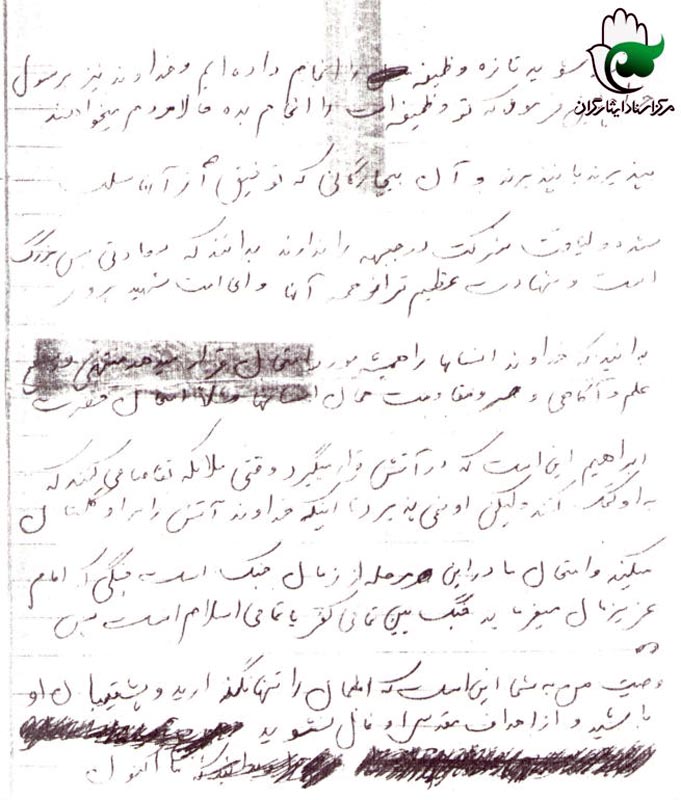 مرکز اسناد ایثارگران
شوید تازه وظیفه را انجام داده ایم و خداوند نیز برسول
که تو وظیفه ات را انجام بده حالا مردم میخواهند
بپذیرند یا نپذیرند و آن بیچارگانی که توفیق از آنها سلب
شده و لیاقت شرکت در جبهه را ندارند بدانند که سعادتی بس بزرگ
است و شهادت عظیم تر از همه آنها و ای امت شهید پرور
بدانید که خداوند انسانها را همیشه مورد امتحان قرار میدهد منتهی
علم و آگاهی و صبر و مقاومت همان انسانها و الا امتحان حضرت
ابراهیم این است که در آتش قرار میگیرد وقتی ملائکه تقاضا می کنند که
به او کمک کنند ولیکن او نمی پذیرد تا اینکه خداوند آتش را بر او گلستان
میکند و امتحان ما در این مرحله از زمان جنگ است جنگی که امام
عزیزمان میفرماید جنگ بین تمامی کفر با تمامی اسلام است پس
وصیت من به شما این است که امام را تنها نگذارید و پشتیبان او
باشید و از اهداف مقدس او غافل نشوید
تا اکنون